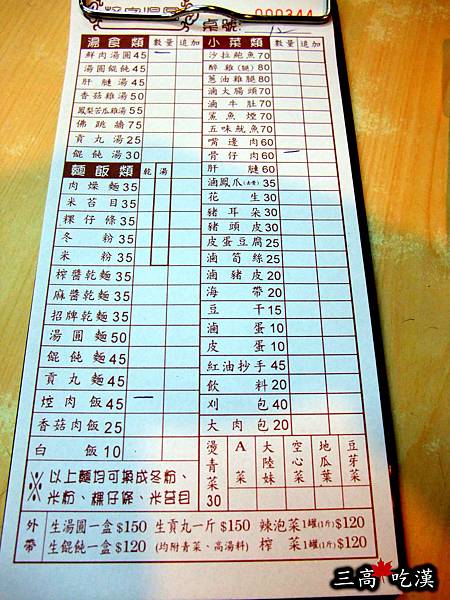 000344
桌號: 12
湯食類 數量 追加
鮮肉湯圓45
湯圓餛飩45
肝腱湯45
香菇雞湯50
鳳梨苦瓜雞湯55
佛跳牆75
貢丸湯25
餛飩湯30
麵飯類 乾 湯
肉燥麵35
米苔目35
粿仔條35
冬粉35
米粉35
榨醬乾麵35
麻醬乾麵35
招牌乾麵35
湯圓麵50
餛飩麵45
貢丸麵45
焢肉飯45
香菇肉飯25
白飯10
※以上麵均可換成冬粉、
米粉、粿仔條、米苔目
小菜類 數量 追加
沙拉鮑魚70
醉雞(腿)80
蔥油雞腿80
滷大腸頭70
滷牛肚70
鯊魚煙70
五味魷魚70
嘴邊肉60
骨仔肉60
肝腱60
滷鳳爪(去骨)35
花生30
豬耳朵30
豬頭皮30
皮蛋豆腐25
滷筍絲25
滷豬皮20
海帶20
豆干15
滷蛋10
皮蛋10
紅油抄手45
飲料20
刈包40
大肉包20
燙青菜30
A菜
大陸妹
空心菜
地瓜葉
豆芽菜
外帶
生湯圓一盒$150 生貢丸一斤$150 辣泡菜1罐(1斤)$120
生餛飩一盒$120 (均附青菜、高湯料) 榨菜1罐(1斤)$120
三高吃漢